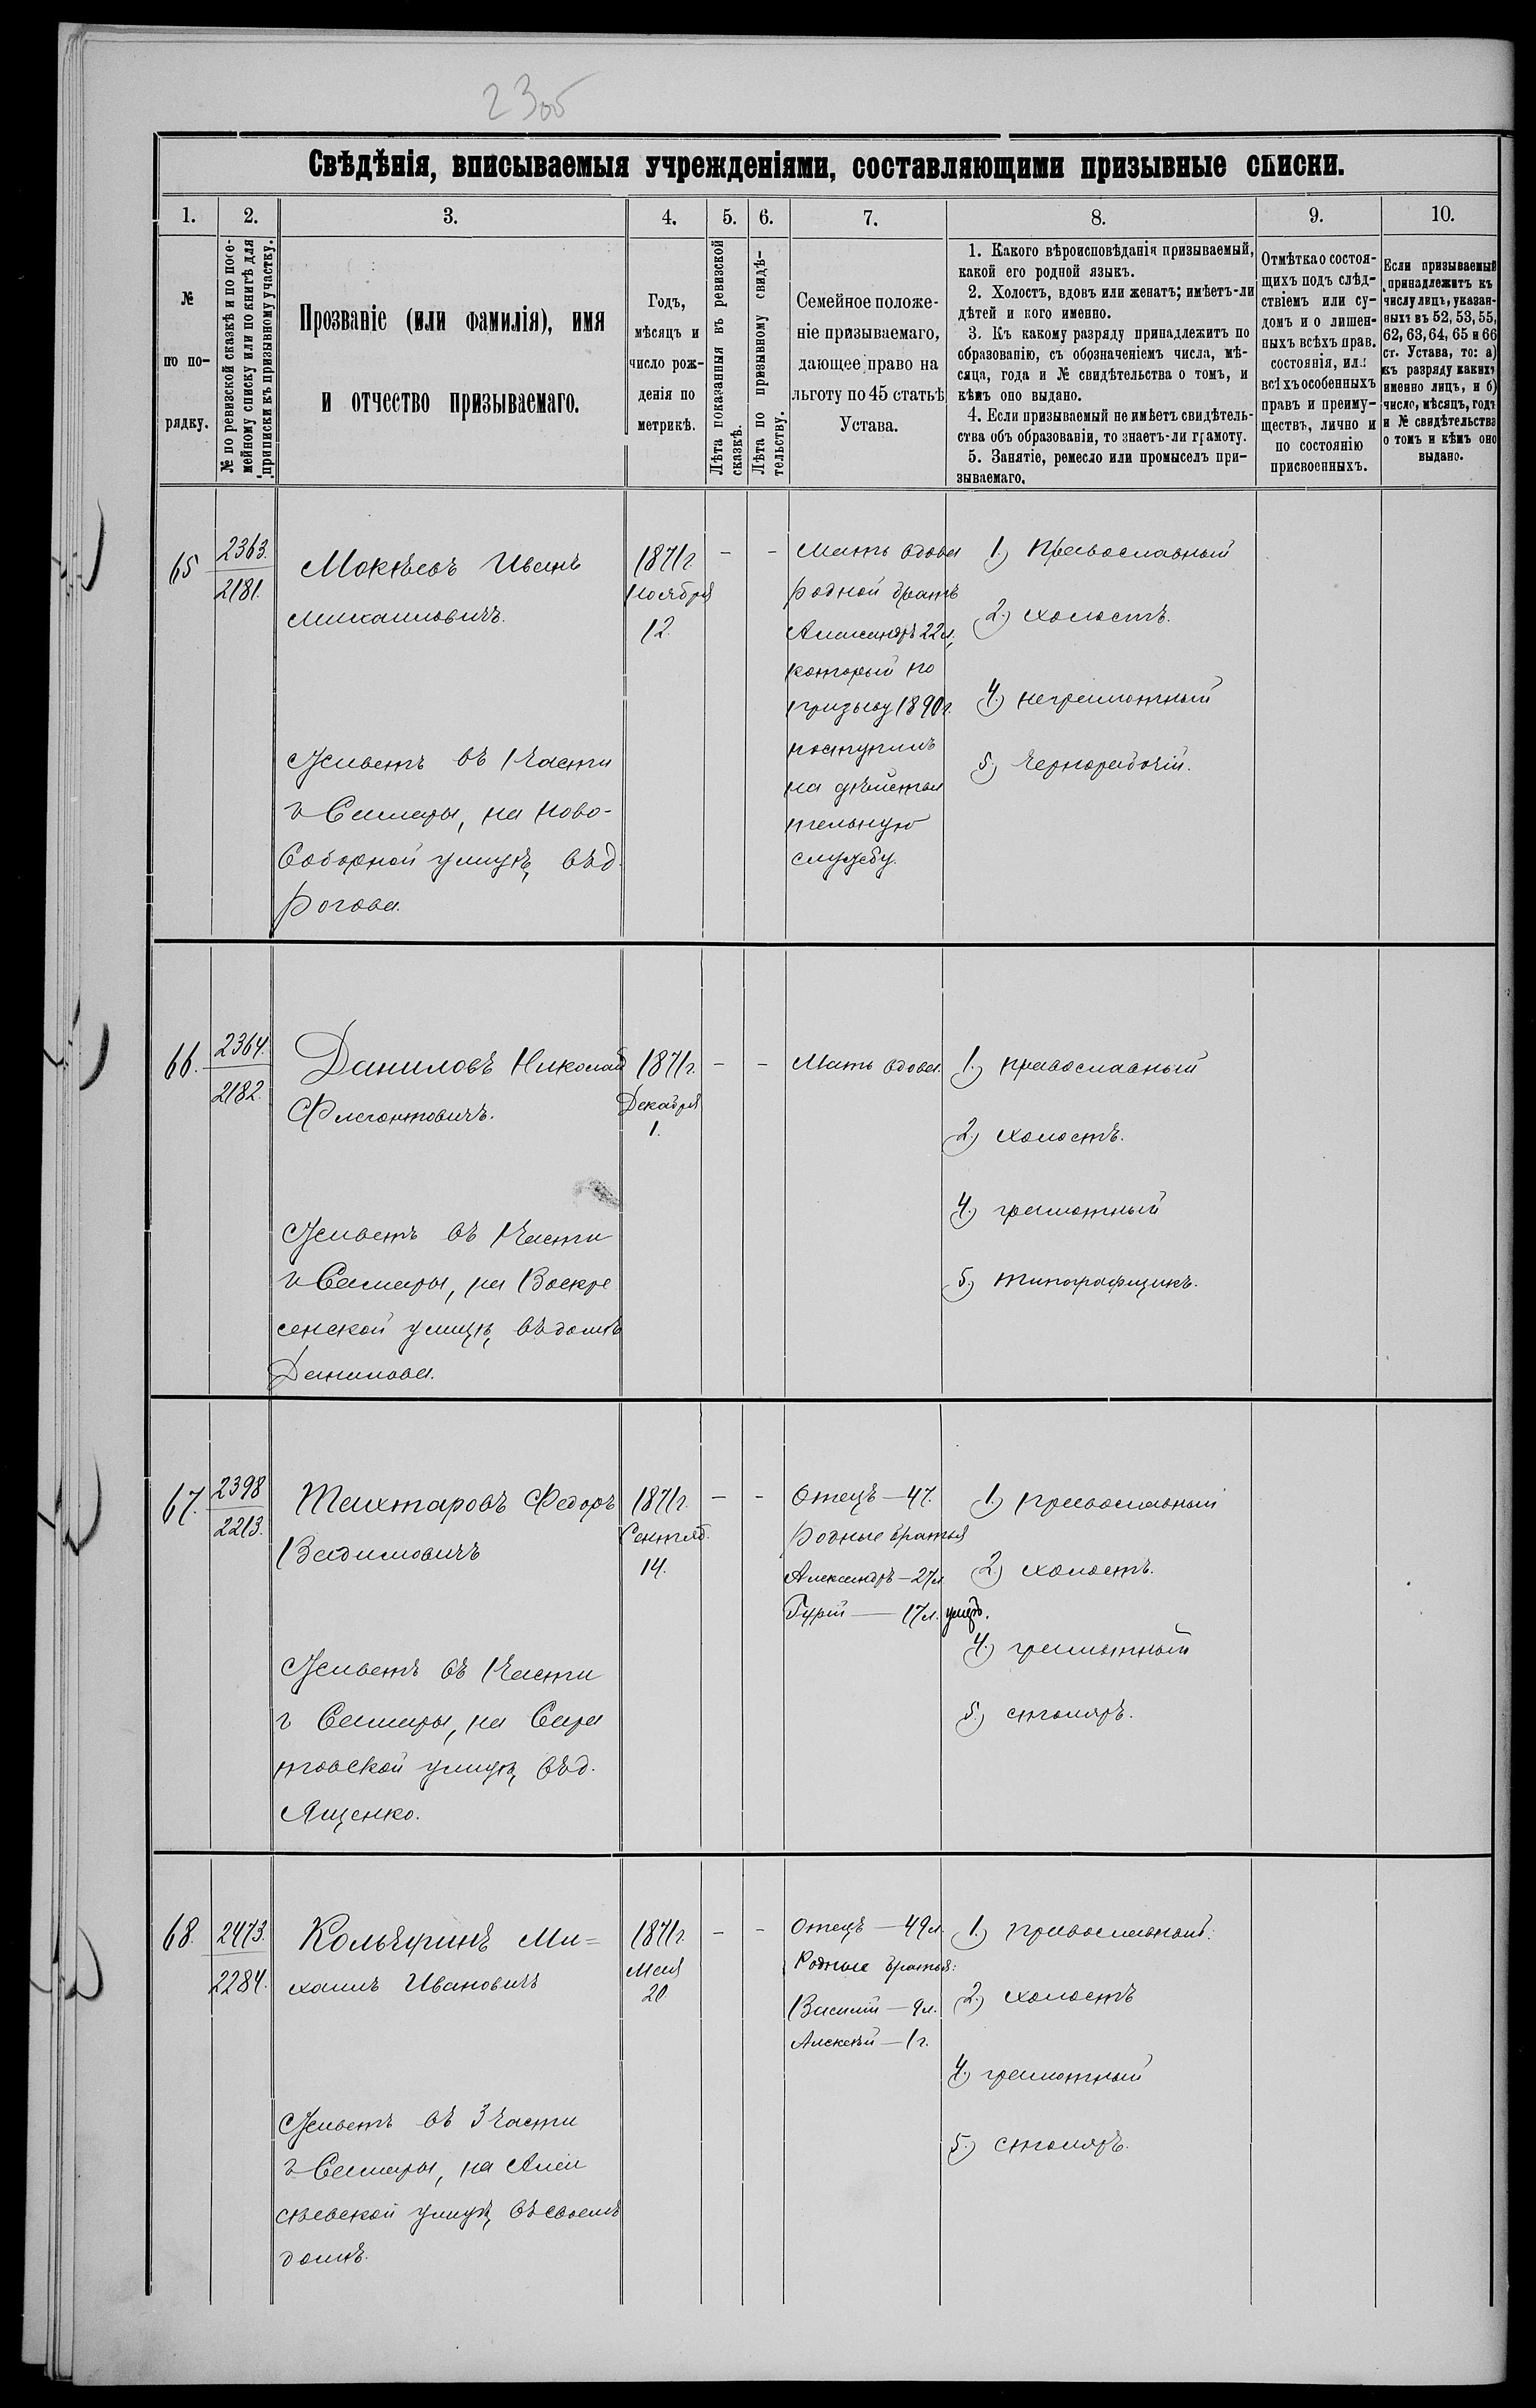 23об
Свѣдѣнія, вписываемыя учрежденіями, составляющими призывные списки.
1. 2. 3. 4. 5. 6. 7. 8. 9. 10.
№
по по-
рядку.
№ по ревизской сказкѣ и по посе-
мейному списку или по книгѣ для
приписки къ призывному участку.
Прозваніе (или фамилія), имя
и отчество призываемаго.
Годъ,
мѣсяцъ и
число рож-
денія по
метрикѣ.
Лѣта показанныя въ ревизской
сказкѣ.
Лѣта по призывному свидѣ-
тельству.
Семейное положе-
ніе призываемаго,
дающее право на
льготу по 45 статьѣ
Устава.
1. Какого вѣроисповѣданія призываемый,
какой его родной языкъ.
2. Холостъ, вдовъ или женатъ; имѣетъ-ли
дѣтей и кого именно.
3. Къ какому разряду принадлежитъ по
образованію, съ обозначеніемъ числа, мѣ-
сяца, года и № свидѣтельства о томъ, и
кѣмъ оно выдано.
4. Если призываемый не имѣетъ свидѣтель-
ства объ образованіи, то знаетъ-ли грамоту.
5. Занятіе, ремесло или промыселъ при-
зываемаго.
Отмѣтка о состоя-
щихъ подъ слѣд-
ствіемъ или су-
домъ и о лишен-
ныхъ всѣхъ прав.
состоянія, или
всѣхъ особенныхъ
правъ и преиму-
ществъ, лично и
по состоянію
присвоенныхъ.
Если призываемый
принадлежитъ къ
числу лицъ, указан-
ныхъ въ 52, 53, 55,
62, 63, 64, 65 и 66
ст. Устава, то: а)
къ разряду какихъ
именно лицъ, и б)
число, мѣсяцъ, годъ
и № свидѣтельства
о томъ и кѣмъ оно
выдано.
65
2363.
2181.
Мокѣевъ Иванъ
Михаиловичъ.
Живетъ въ 1 части
г Самары, на Ново-
Соборной улицѣ, въ д.
Рогова.
1871 г.
Ноября
12.
–
–
Мать вдова
родной братъ
Александръ 22 л.,
который по
призыву 1890 г.
поступилъ
на дѣйстви
тельную
службу.
1.) Православный
2.) холостъ.
4.) неграмотный
5.) чернорабочій.
66.
2364.
2182.
Даниловъ Николай
Флегонтовичъ.
Живетъ въ 1 части
г Самары, на Воскре
сенской улицѣ, въ домѣ
Данилова.
1871 г.
Декабря
1.
–
–
Мать вдова.
1.) православный
2.) холостъ.
4.) грамотный
5.) типографщикъ.
67.
2398
2213.
Тахтаровъ Федоръ
Вадимовичъ
Живетъ въ 1 части
г Самары, на Сара
товской улицѣ, въ д.
Ященко.
1871 г.
Сентяб.
14.
–
–
Отецъ — 47.
Родные братья
Александръ — 27 л
Гурій — 17 л. умеръ.
1.) православный
2.) холостъ.
4.) грамотный
5.) столяръ.
68.
2473.
2284.
Кольчугинъ Ми=
хаилъ Ивановичъ
Живетъ въ 3 части
г Самары, на Алек
сѣевской улицѣ, въ своемъ
домѣ.
1871 г.
Мая
20
–
–
Отецъ — 49 л.
Родные братья:
Василій — 9 л.
Алексѣй — 1 г.
1.) православный.
2.) холостъ
4.) грамотный
5.) столяръ.